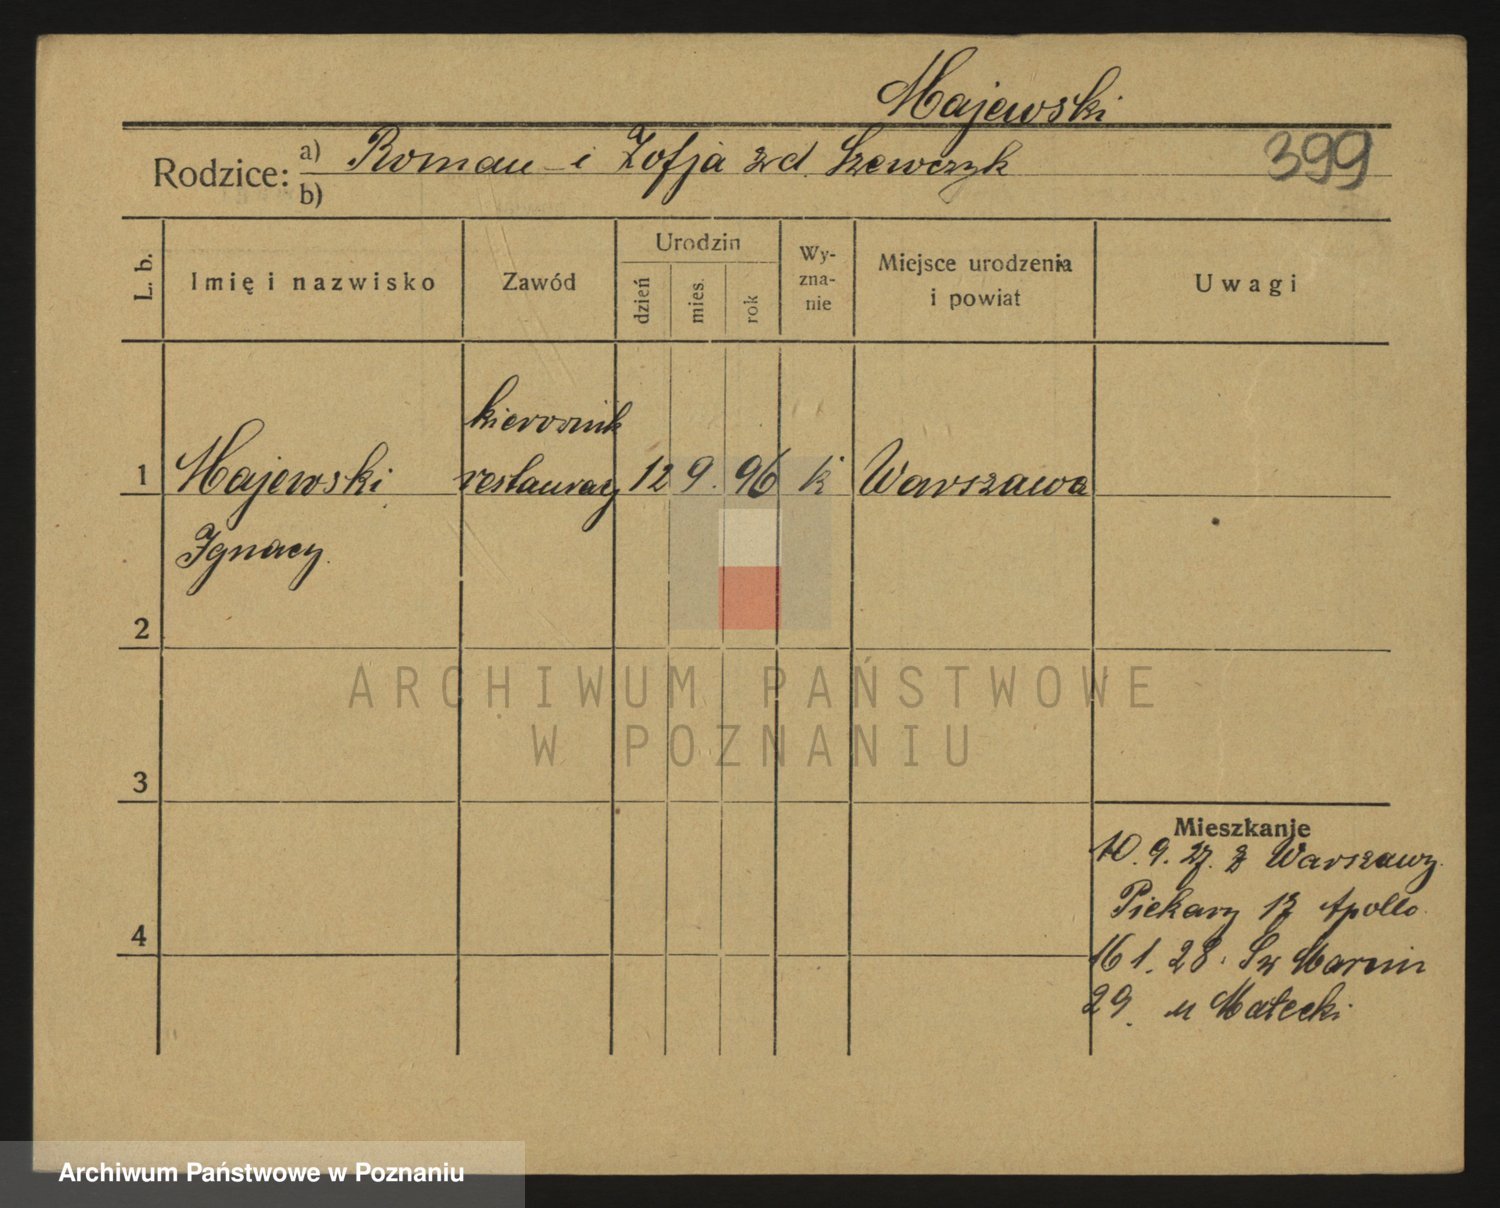 Majewski
399
Rodzice: a) Roman i Zofja zd. Szewczyk
b)
L. b.
Imię i nazwisko
Zawód
Urodzin
dzień
mies.
rok
Wy-
zna-
nie
Miejsce urodzenia
i powiat
Uwagi
kierownik
1 Majewski restauracy 12 9. 96 k Warszawa
Ignacy.
2
3
4
Mieszkanie
10. 9. 27. z Warszawy.
Piekary 17 Apollo.
16 1. 28. Św Marcin
29. u Małecki
ARCHIWUM PAŃSTWOWE
W POZNANIU
Archiwum Państwowe w Poznaniu